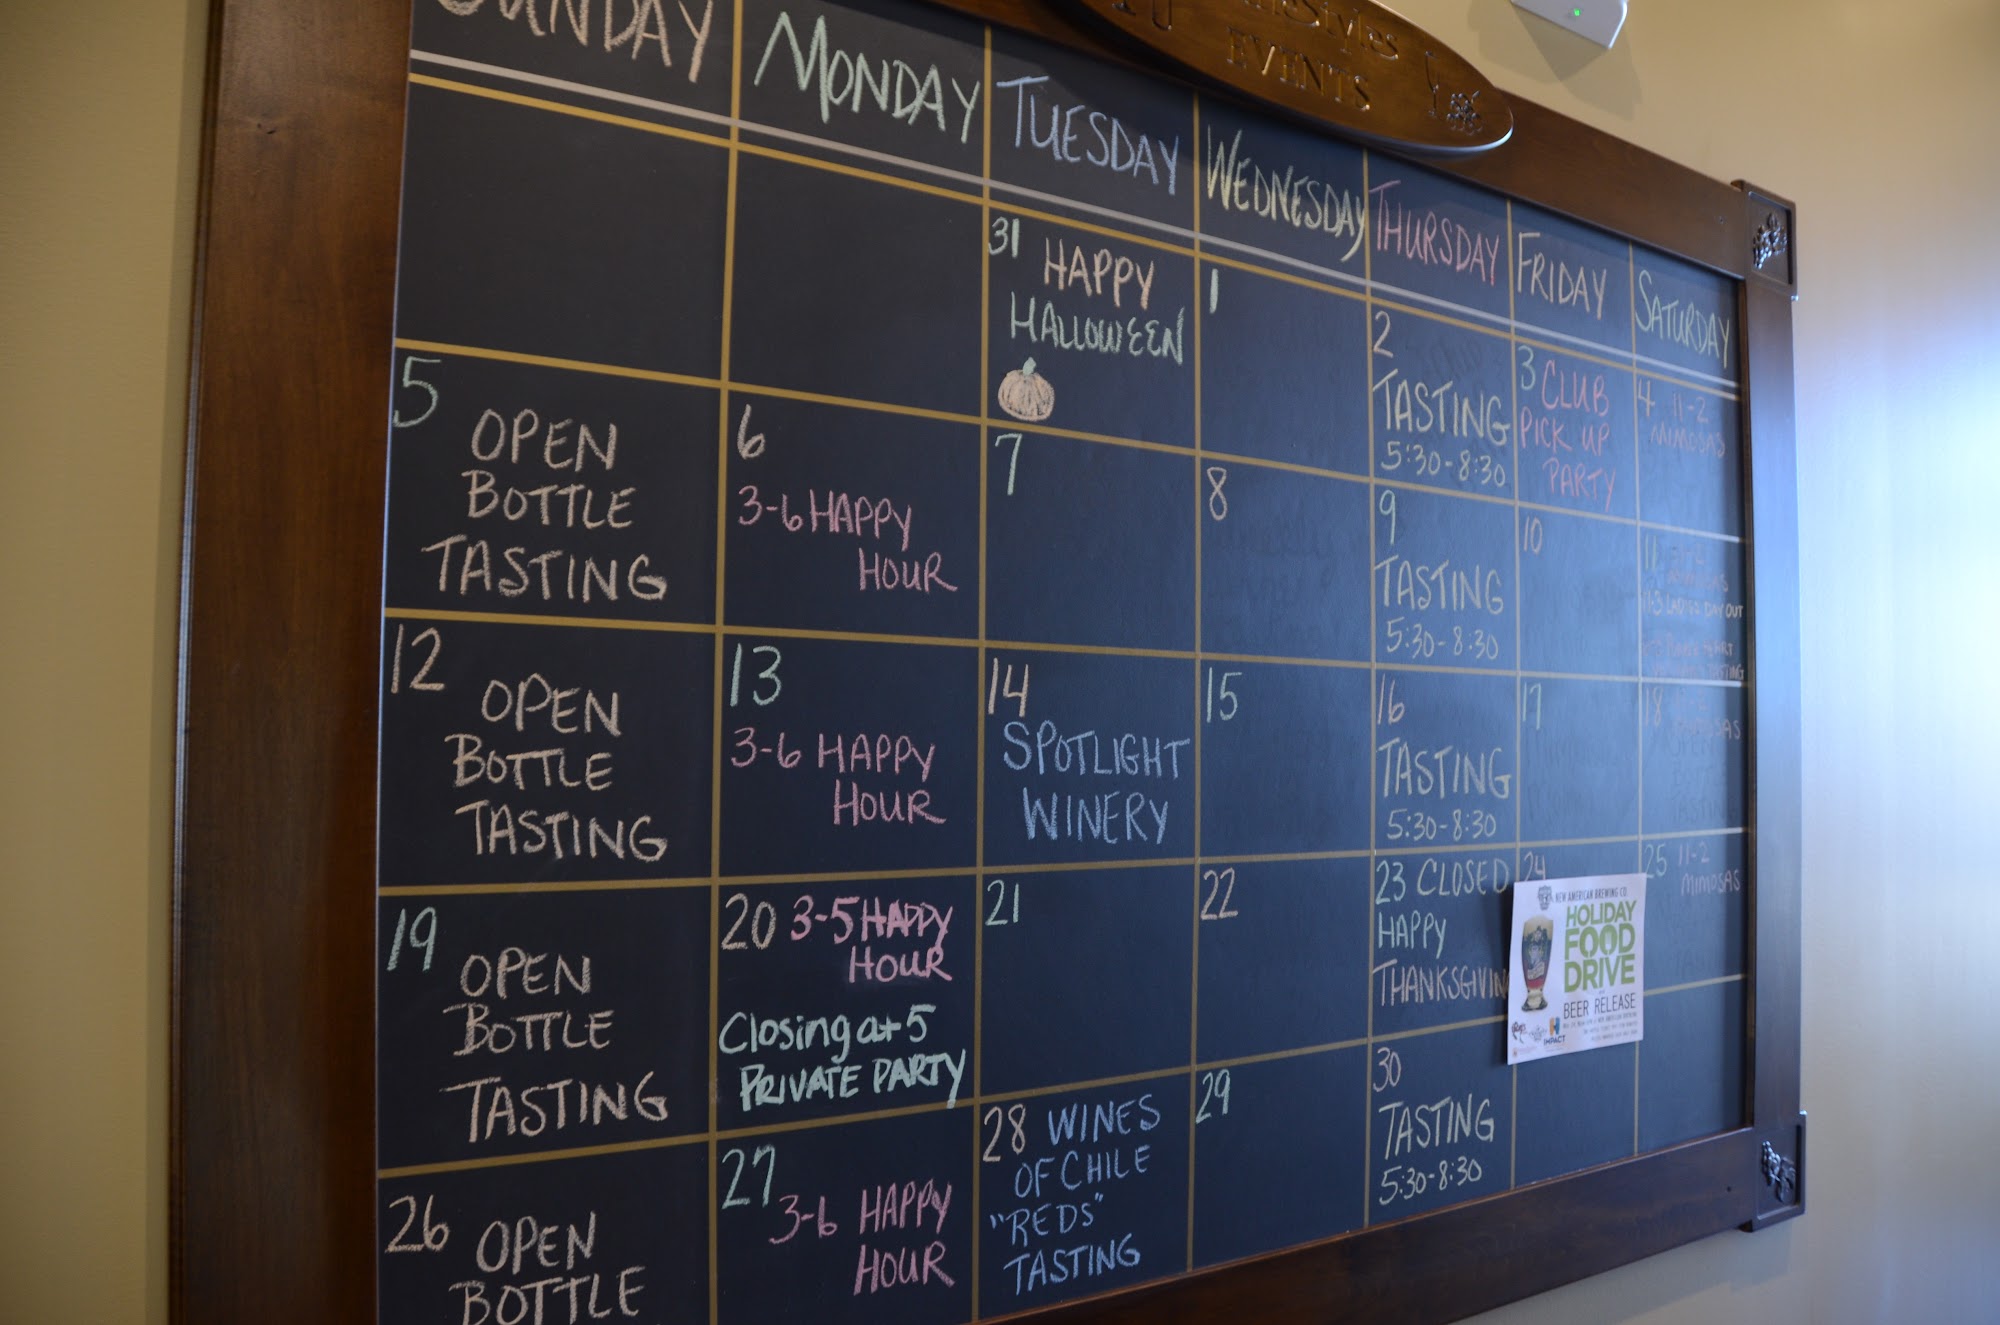 EVENTS
SUNDAY
MONDAY
TUESDAY
WEDNESDAY
THURSDAY
FRIDAY
SATURDAY
31
HAPPY
HALLOWEEN
1
2
TASTING
5:30-8:30
3 CLUB
PICK UP
PARTY
4 11-2
MIMOSAS
5
OPEN
BOTTLE
TASTING
6
3-6 HAPPY
HOUR
7
8
9
TASTING
5:30-8:30
10
11
11-3 LADIES DAY OUT
TASTING
12
OPEN
BOTTLE
TASTING
13
3-6 HAPPY
HOUR
14
SPOTLIGHT
WINERY
15
16
TASTING
5:30-8:30
17
18
19
OPEN
BOTTLE
TASTING
20 3-5 HAPPY
HOUR
Closing at 5
PRIVATE PARTY
21
22
23 CLOSED
HAPPY
THANKSGIVIN
24
NEW AMERICAN BREWING CO.
HOLIDAY
FOOD
DRIVE
BEER RELEASE
IMPACT
25 11-2
MIMOSAS
26
OPEN
BOTTLE
27
3-6 HAPPY
HOUR
28 WINES
OF CHILE
"REDS"
TASTING
29
30
TASTING
5:30-8:30